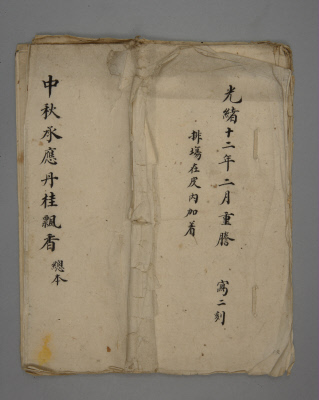 光緒十二年二月重謄　寫二刻
排場在皮內加着
中秋承應丹桂飄香　總本